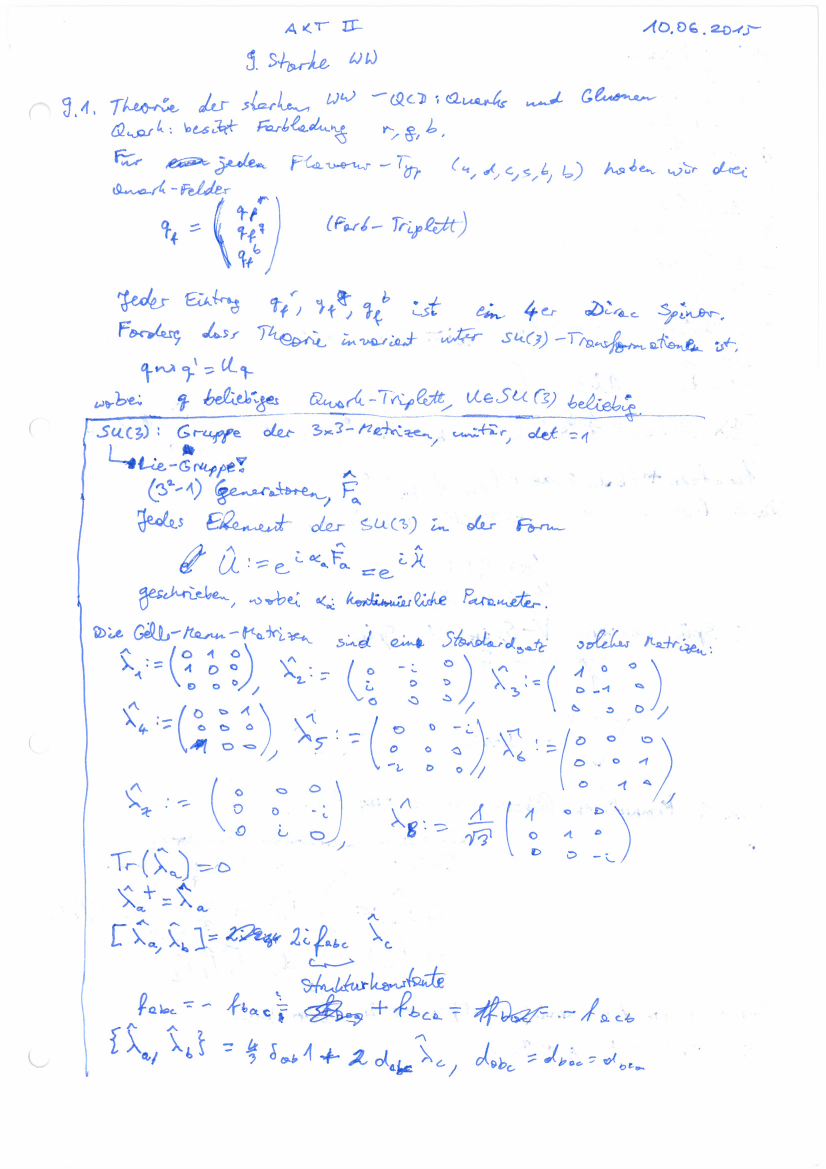 AKT II 10.06.2015
9. Starke WW
9.1. Theorie der starken WW – QCD: Quarks und Gluonen
Quark: besitzt Farbladung r, g, b.
Für jeden Flavour-Typ (u, d, c, s, b, b) haben wir drei
Quark-Felder
q_f = (q_f^r q_f^g q_f^b) (Farb-Triplett)
Jeder Eintrag q_f^r, q_f^g, q_f^b ist ein 4er Dirac Spinor.
Fordere, dass Theorie invariant unter SU(3)-Transformationen ist.
q ⇝ q' = Uq
wobei q beliebiges Quark-Triplett, U∈SU(3) beliebig
SU(3): Gruppe der 3x3-Matrizen, unitär, det = 1
Lie-Gruppe!
(3²-1) Generatoren, F̂_a
Jedes Element der SU(3) in der Form
Û := e^{i α_a F̂_a} = e^{i Ĥ}
geschrieben, wobei α_i kontinuierliche Parameter.
Die Gell-Mann-Matrizen sind ein Standardsatz solcher Matrizen:
λ̂_1 := (0 1 0 / 1 0 0 / 0 0 0), λ̂_2 := (0 -i 0 / i 0 0 / 0 0 0), λ̂_3 := (1 0 0 / 0 -1 0 / 0 0 0),
λ̂_4 := (0 0 1 / 0 0 0 / 1 0 0), λ̂_5 := (0 0 -i / 0 0 0 / -i 0 0), λ̂_6 := (0 0 0 / 0 0 1 / 0 1 0),
λ̂_7 := (0 0 0 / 0 0 -i / 0 i 0), λ̂_8 := 1/√3 (1 0 0 / 0 1 0 / 0 0 -i)
Tr(λ̂_a) = 0
λ̂_a^+ = λ̂_a
[λ̂_a, λ̂_b] = 2i f_abc λ̂_c
Strukturkonstante
f_abc = - f_bac = + f_bca = - f_acb
{λ̂_a, λ̂_b} = 4/3 δ_ab 1 + 2 d_abc λ̂_c, d_abc = d_bac = d_bca